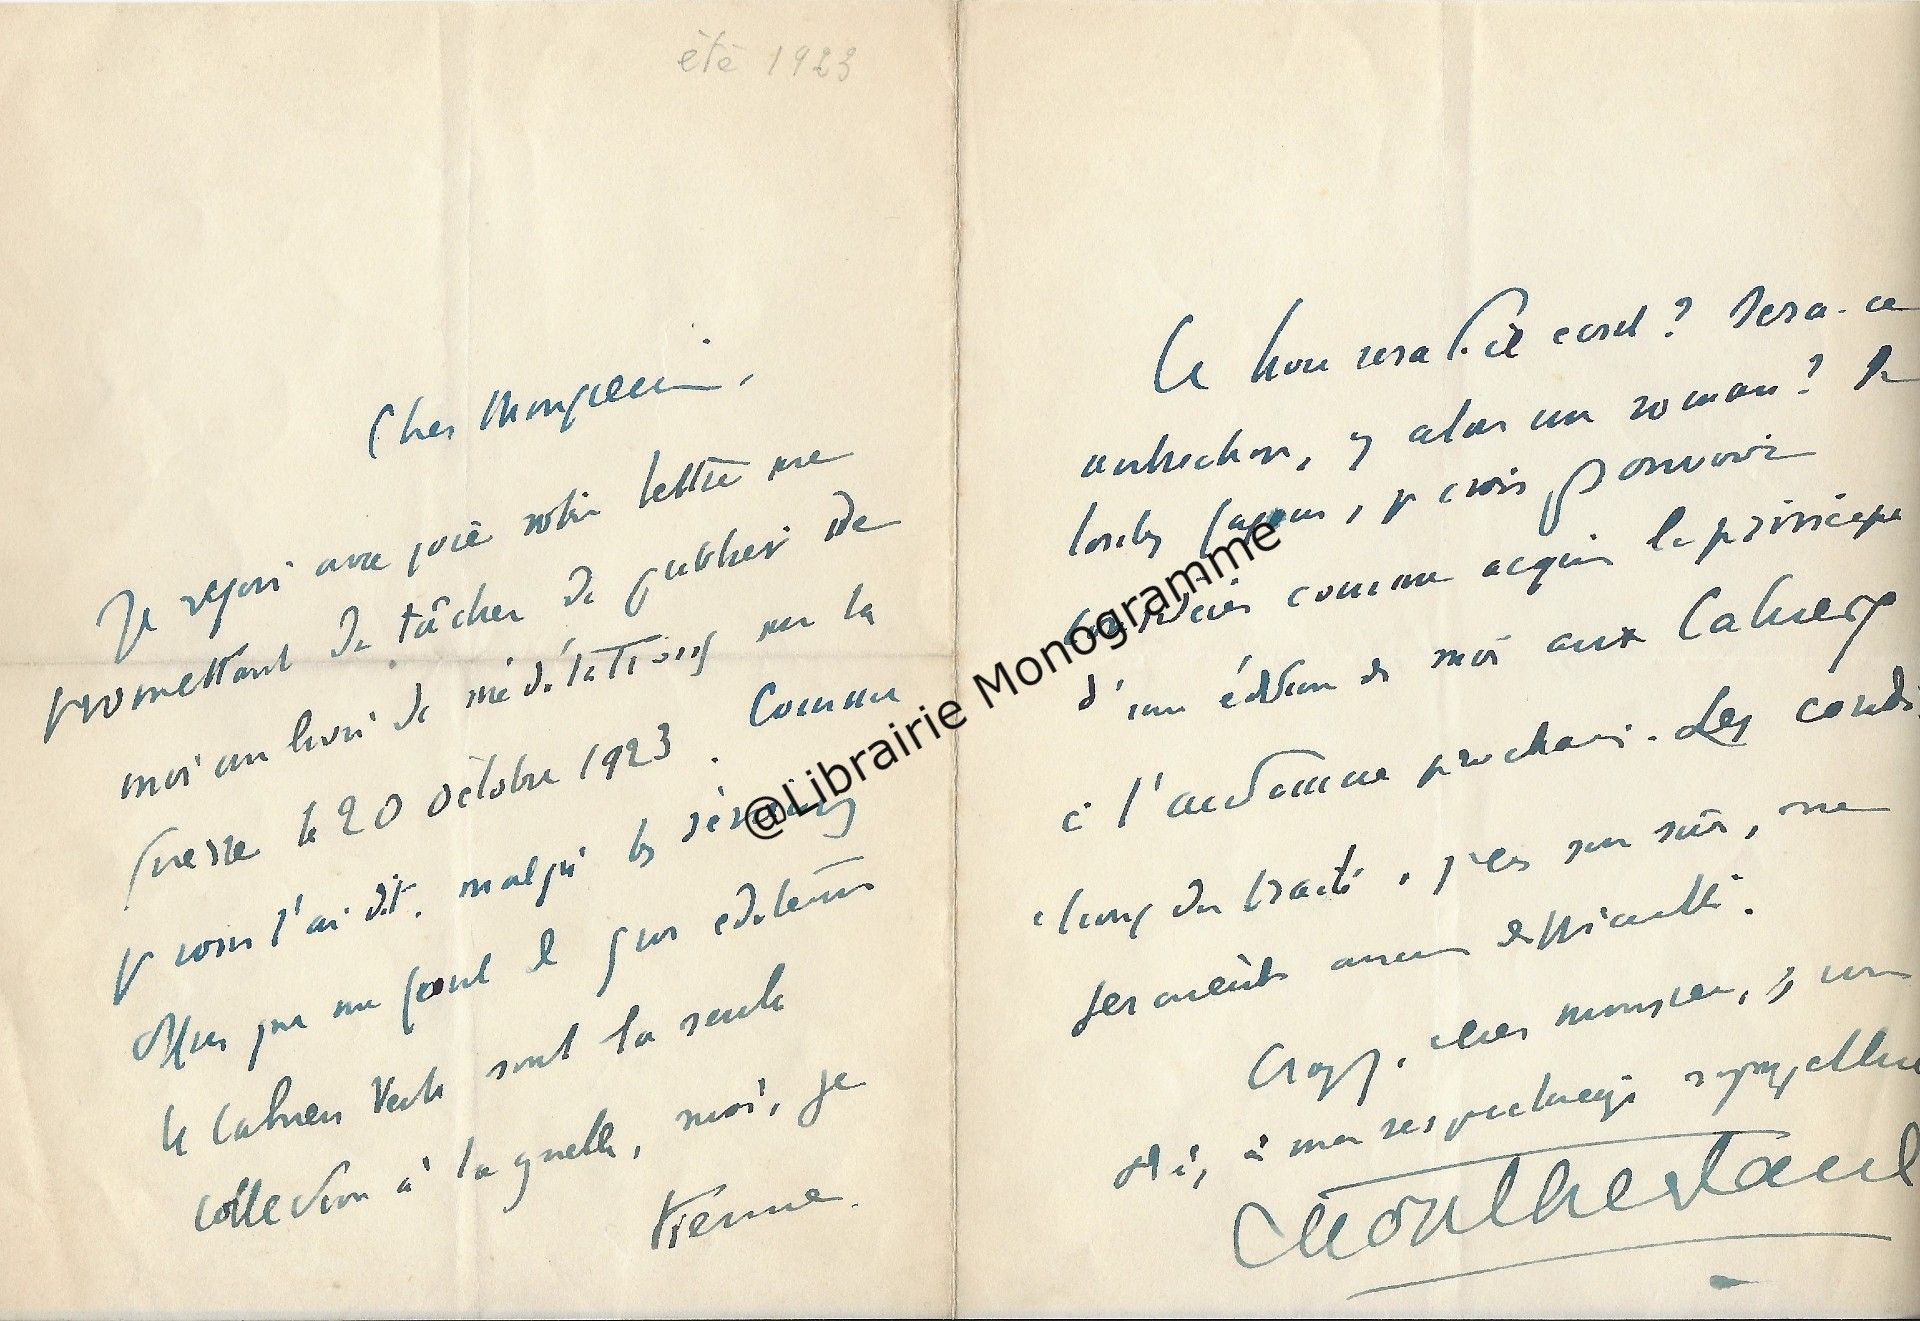 été 1923
Cher Monsieur,
Je reçois avec joie votre lettre me
promettant de tâcher de publier de
moi un livre de méditations sur la
guerre le 20 octobre 1923. Comme
je vous l'ai dit, malgré les
que me font le gros éditeurs
le Cahiers Verts sont la seule
collection à laquelle, moi, je
tienne.
Ce livre sera-t-il cela? Sera-ce
autre chose, y alors un roman? De
toutes façons, je crois pouvoir
considérer comme acquis le principe
d'une édition de moi aux Cahiers
à l'automne prochain. Les condi-
tions du traité, j'en suis sûr, ne
feraient aucune difficulté.
Croyez, cher monsieur, je vous
à mes respectueuse sympathie
Montherlant
@Librairie Monogramme